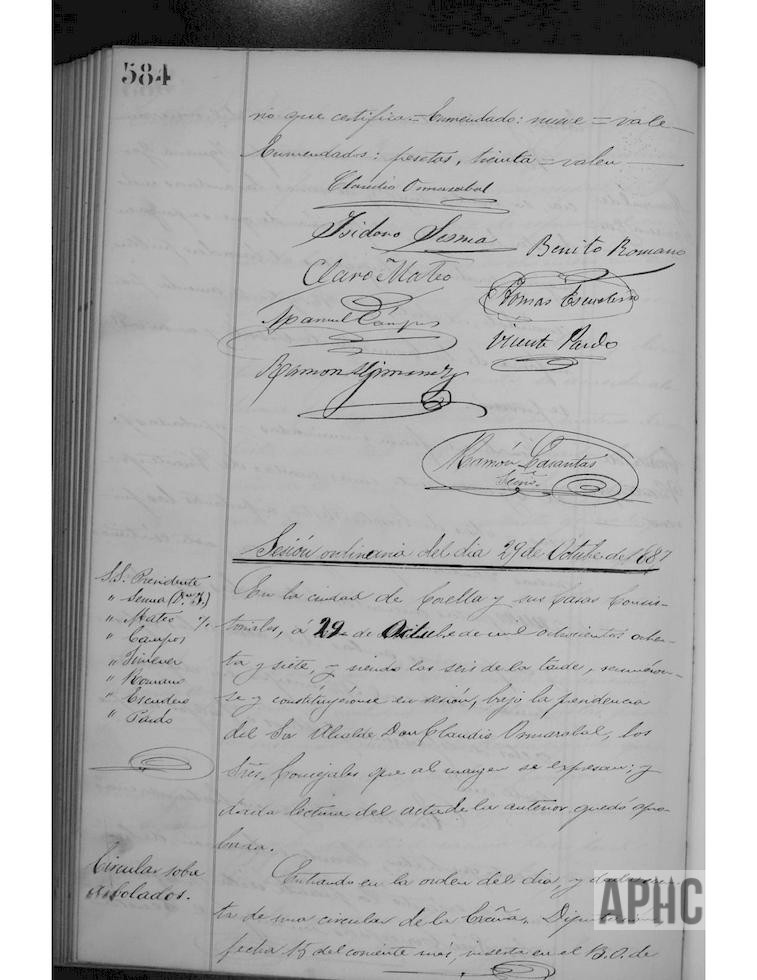 584
rio que certifica.=Enmendado: nueve = vale
Enmendados: pesetas, treinta = valen
Claudio Osmarabal
Isidoro Sesma
Benito Romano
Claro Mateo
Tomas Escudero
Manuel Campos
Vicente Pardo
Ramon Jimenez
Ramón Tarantas
Srio.
Sesión ordinaria del dia 29 de Octubre de 1887
S.S. Presidente
" Sesma (Dn. Y.)
" Mateo
" Campos
" Jimenez
" Romano
" Escudero
" Pardo
En la ciudad de Corella y sus Casas Consis-
toriales, á 29 de Octubre de mil ochocientos ochen-
ta y siete, y siendo las seis de la tarde, reuniéron-
se y constituyéronse en sesión, bajo la presidencia
del Sor Alcalde Don Claudio Osmarabal, los
Sres. Concejales que al margen se expresan; y
dada lectura del acta de la anterior quedó apro-
bada.
Circular sobre
arbolados.
Entrando en la orden del dia, y dada cuen-
ta de una circular de la Excma. Diputación
fecha 15 del corriente mes, inserta en el B.O. de
APHC